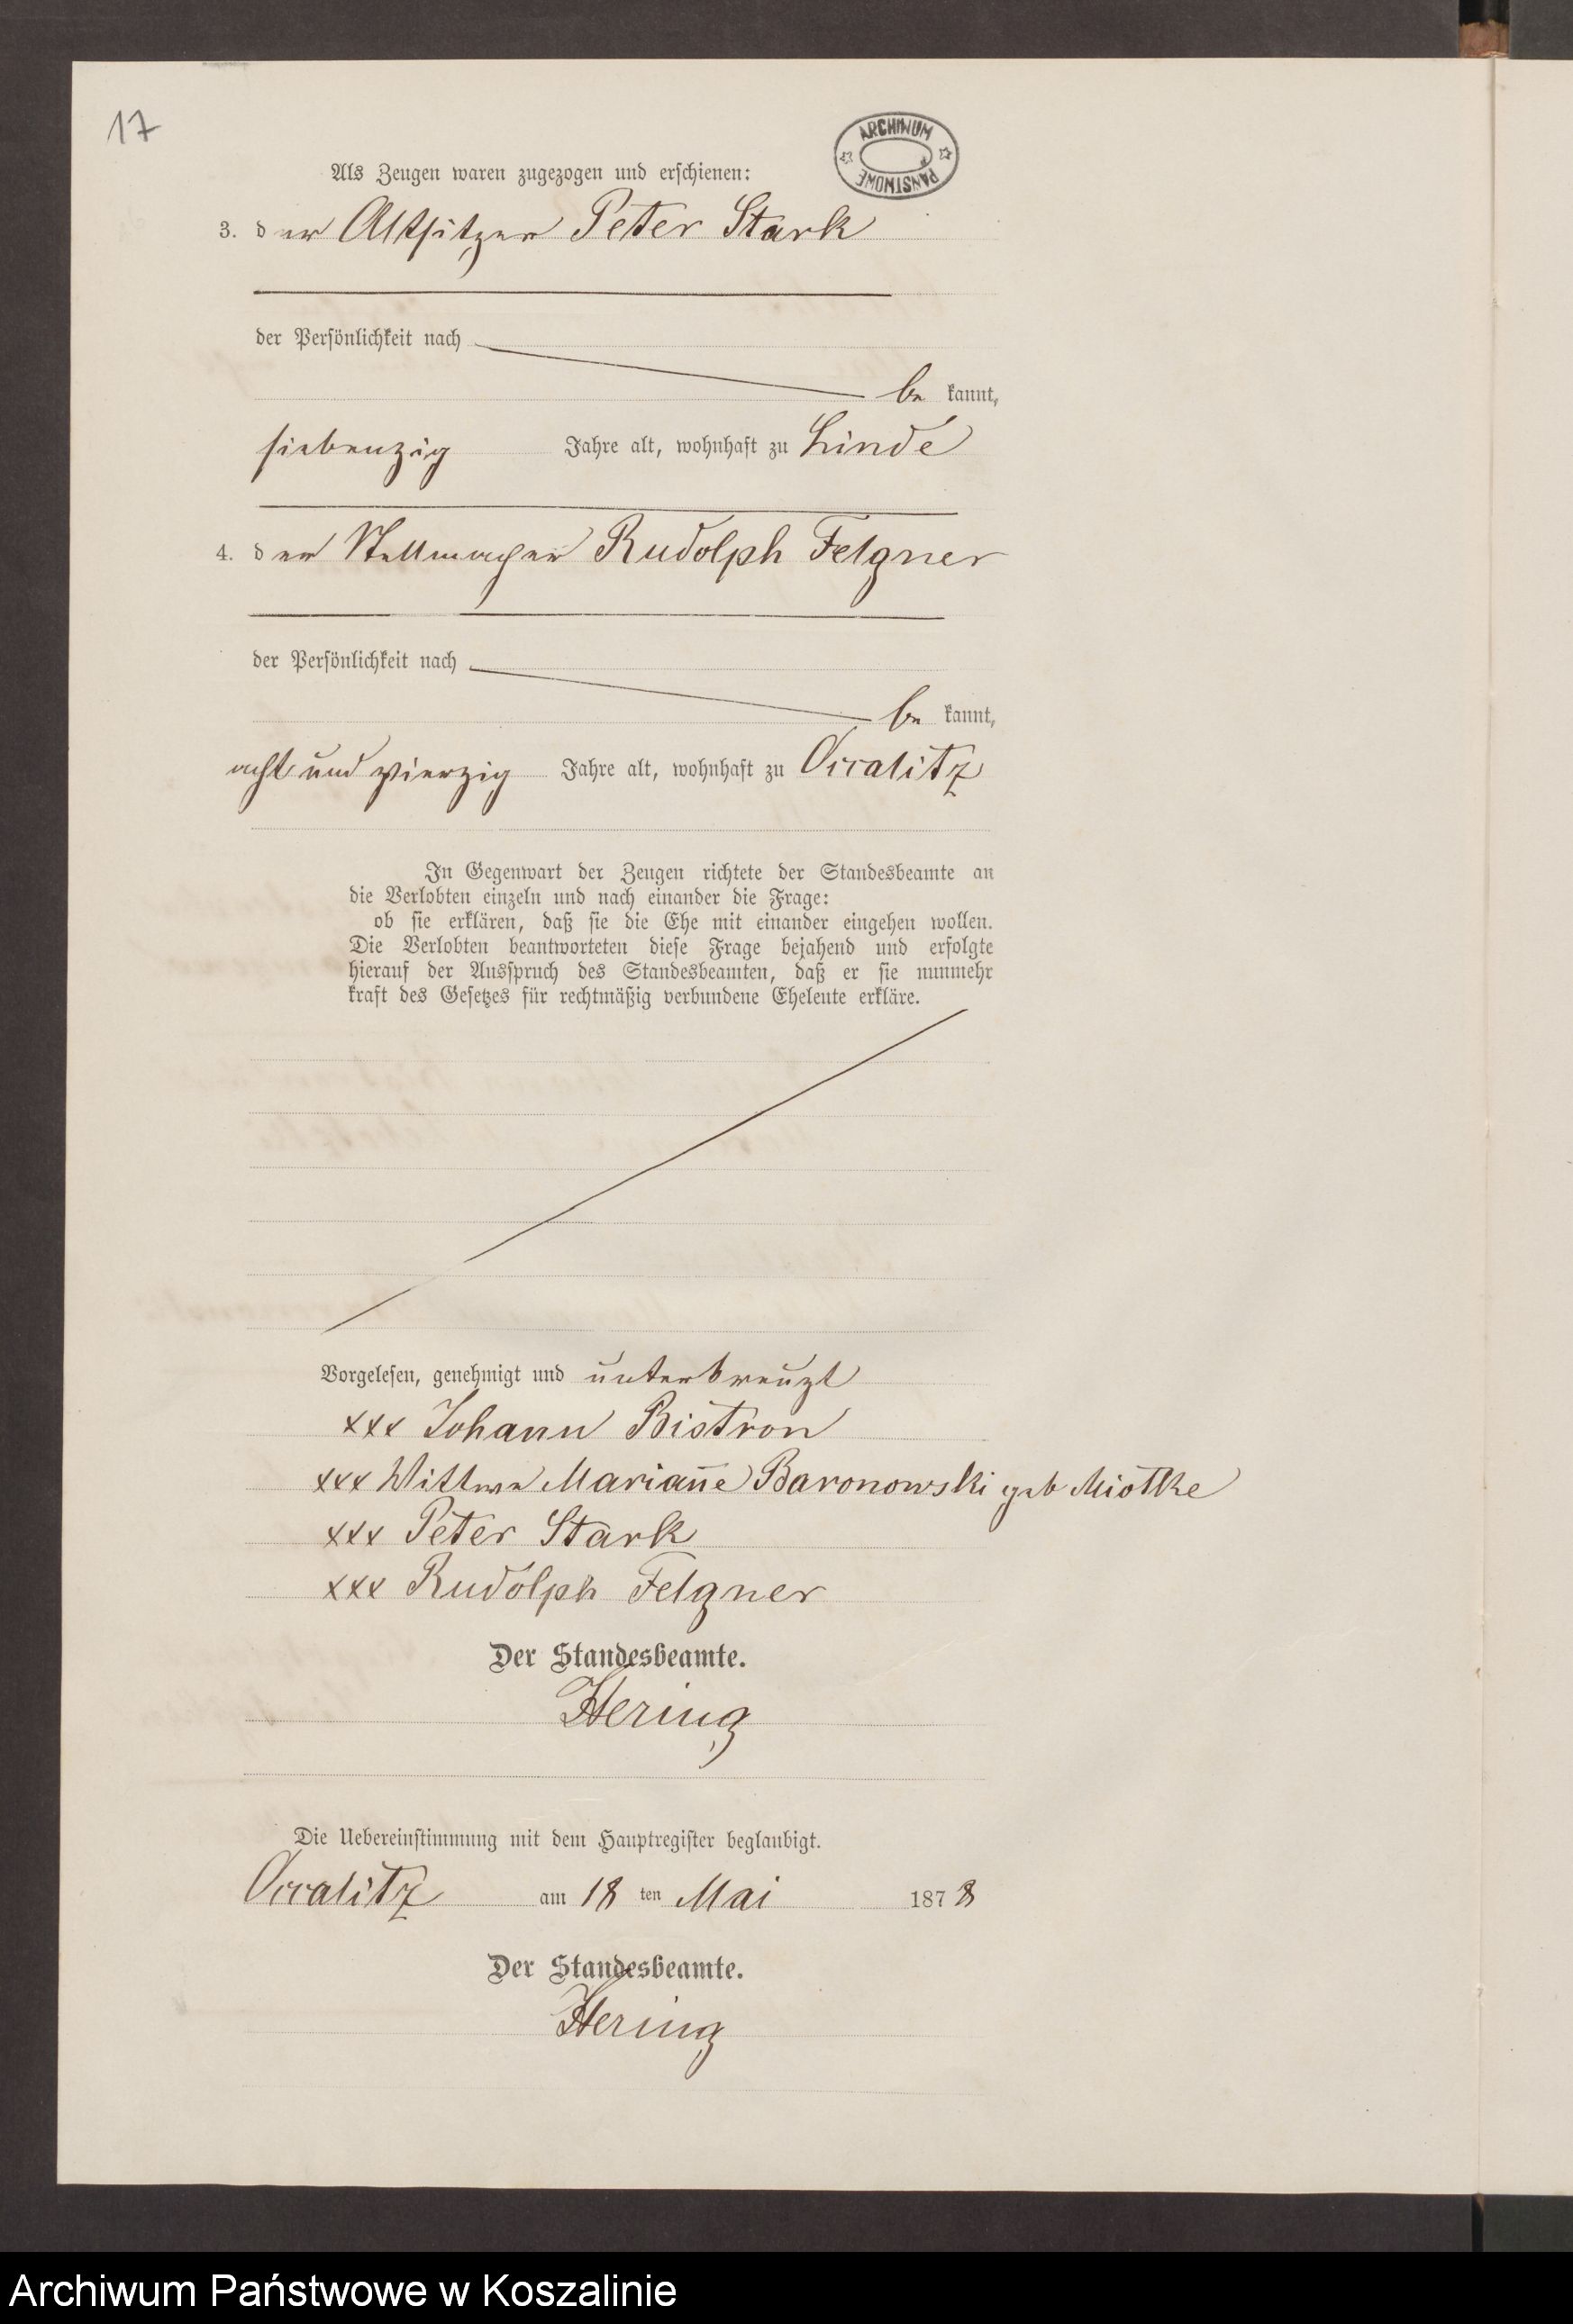 17
ARCHIWUM
PAŃSTWOWE
Als Zeugen waren zugezogen und erschienen:
3. der Altsitzer Peter Stark
der Persönlichkeit nach
be kannt,
siebenzig Jahre alt, wohnhaft zu Linde
4. der Stellmacher Rudolph Felgner
der Persönlichkeit nach
be kannt,
acht und vierzig Jahre alt, wohnhaft zu Occalitz
In Gegenwart der Zeugen richtete der Standesbeamte an
die Verlobten einzeln und nach einander die Frage:
ob sie erklären, daß sie die Ehe mit einander eingehen wollen.
Die Verlobten beantworteten diese Frage bejahend und erfolgte
hierauf der Ausspruch des Standesbeamten, daß er sie nunmehr
kraft des Gesetzes für rechtmäßig verbundene Eheleute erkläre.
Vorgelesen, genehmigt und unterkreuzt
xxx Johann Bistron
xxx Wittwe Marian̄e Baronowski geb Miotke
xxx Peter Stark
xxx Rudolph Felgner
Der Standesbeamte.
Hering
Die Uebereinstimmung mit dem Hauptregister beglaubigt.
Occalitz am 18 ten Mai 1878
Der Standesbeamte.
Hering
Archiwum Państwowe w Koszalinie